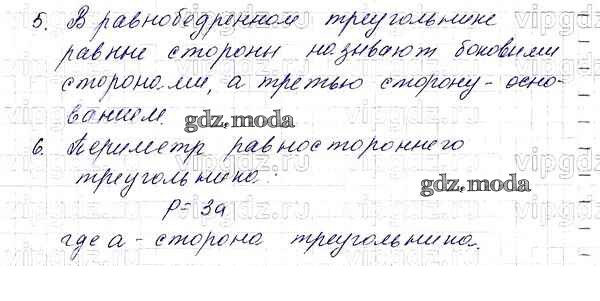 5. В равнобедренном треугольнике
равные стороны называют боковыми
сторонами, а третью сторону - осно-
ванием.
gdz.moda
6. Периметр равностороннего
треугольника:
gdz.moda
P = 3a
где a - сторона треугольника.